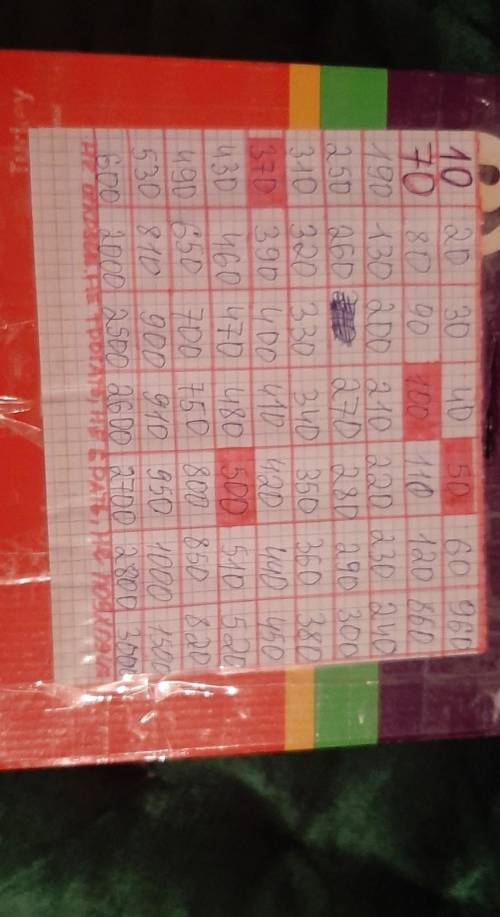 10 20 30 40 50 60 960
70 80 90 100 110 120 860
190 130 200 210 220 230 240
250 260 270 280 290 300
310 320 330 340 350 360 380
370 390 400 410 420 440 450
430 460 470 480 500 510 520
490 650 700 750 800 850 820
530 810 900 910 950 1000 1500
600 2000 2500 2600 2700 2800 3000
НЕ ТРОГАТЬ, НЕ БРАТЬ, НЕ
Turkey